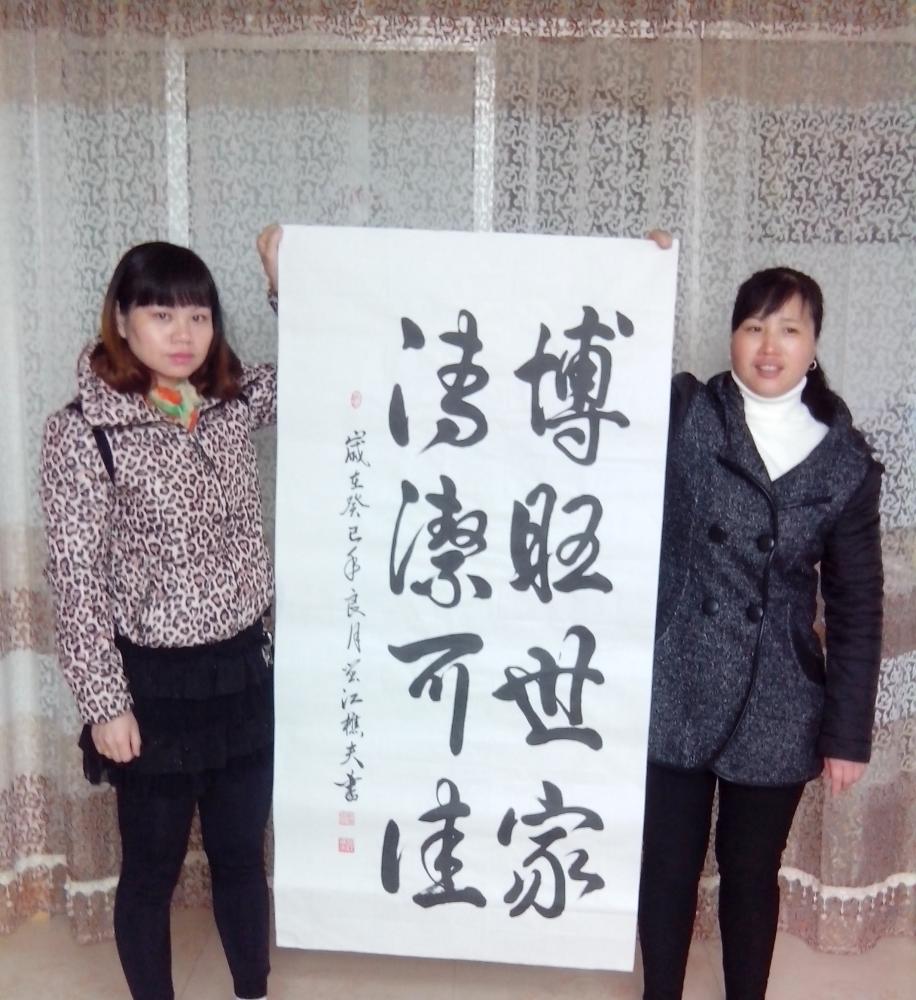 博旺世家
清潔可佳
歲在癸巳年良月江樵夫書